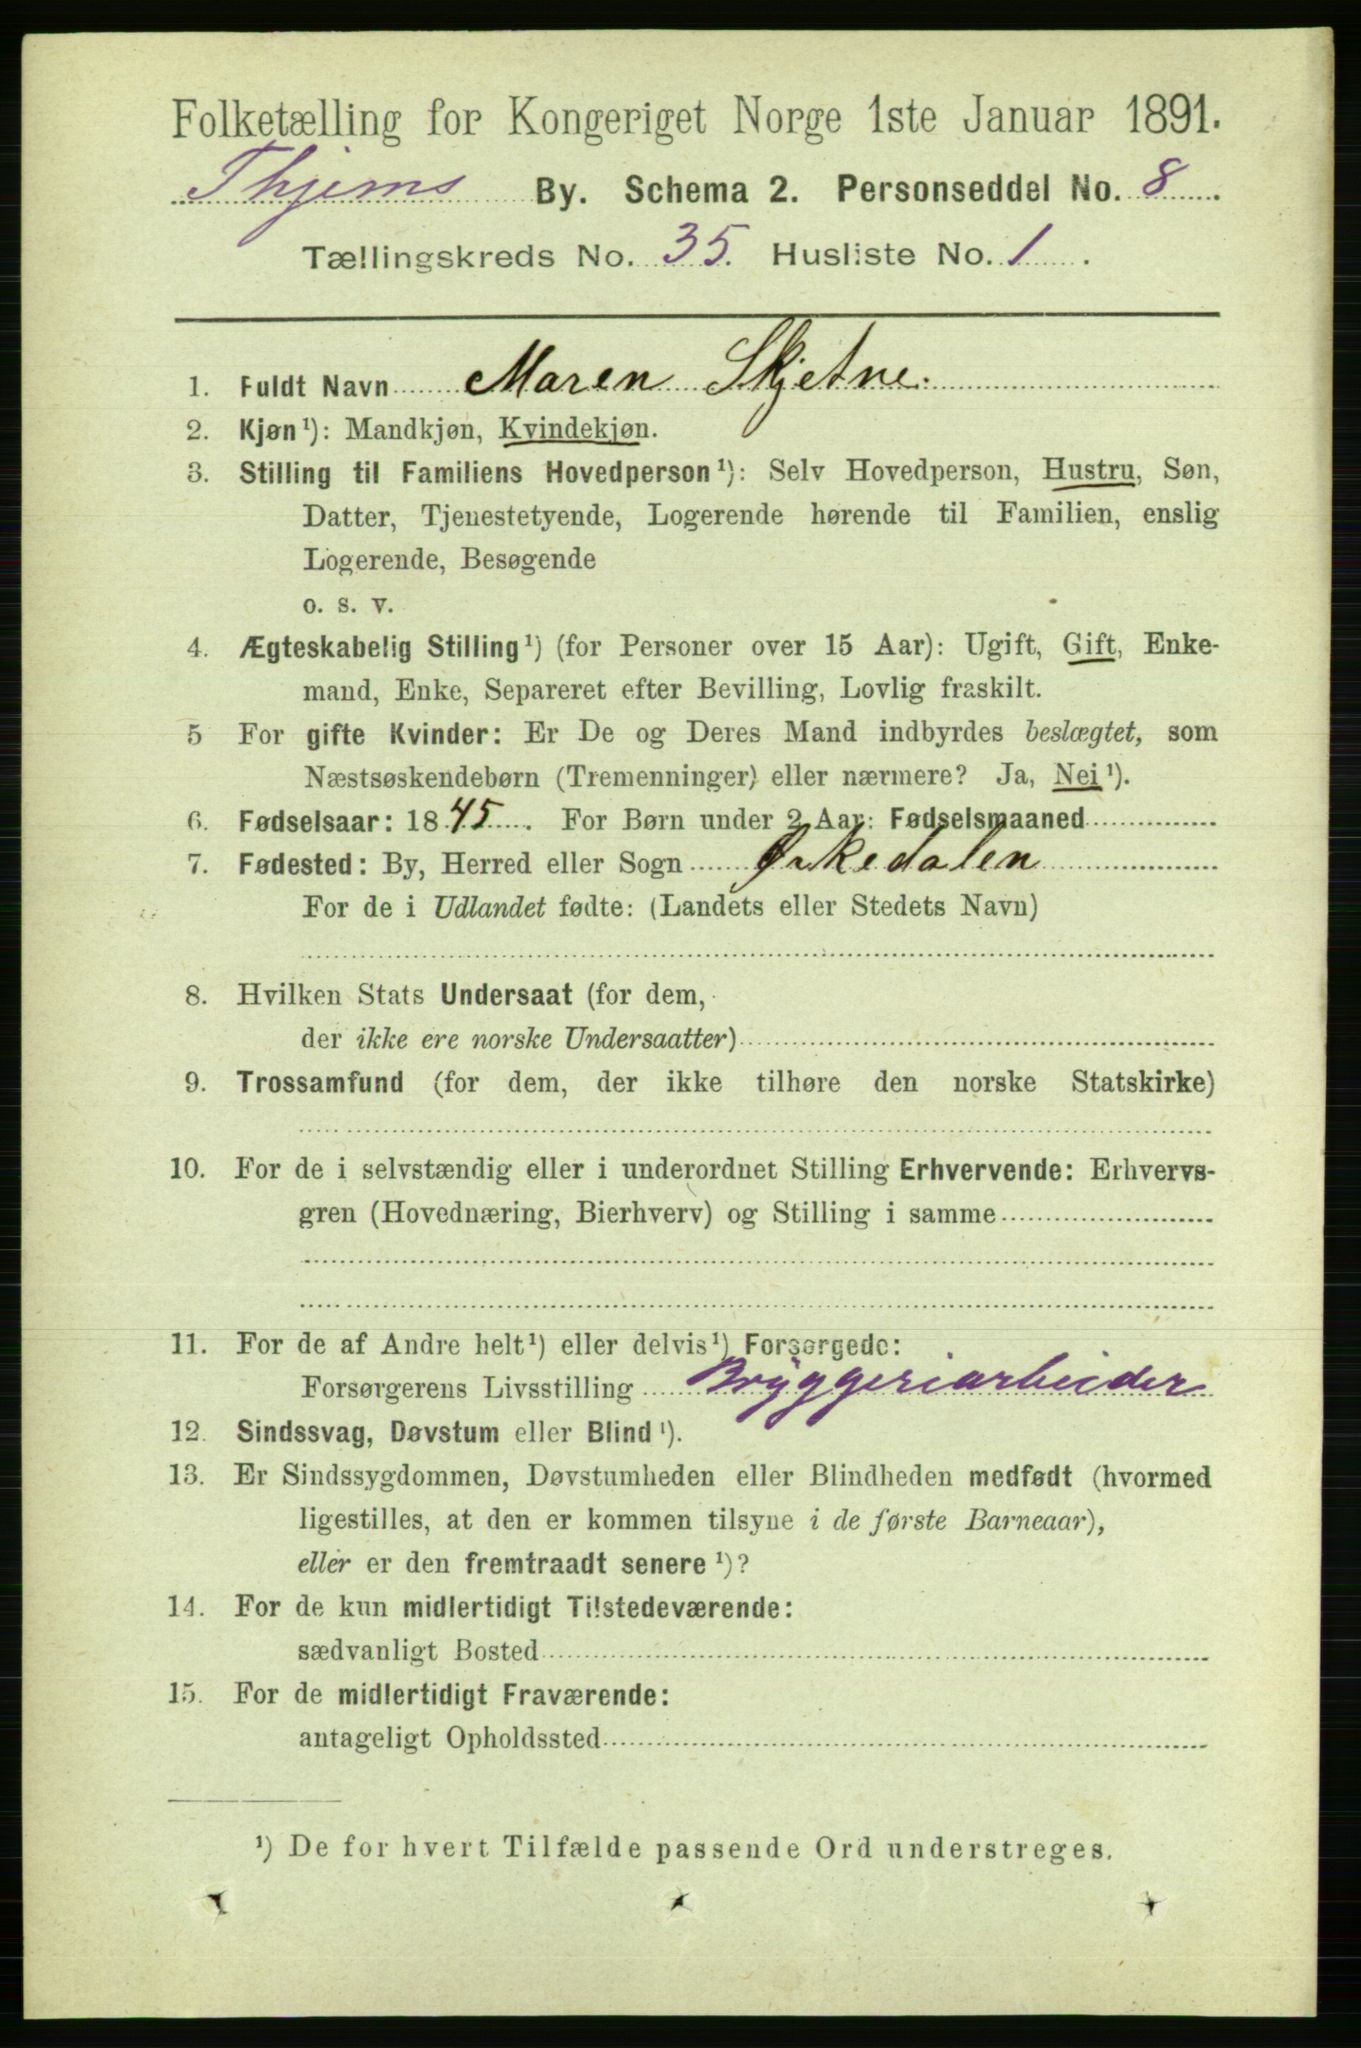 Folketælling for Kongeriget Norge 1ste Januar 1891.
Thjems By. Schema 2. Personseddel No. 8
Tællingskreds No. 35. Husliste No. 1.
1. Fuldt Navn Maren Skjetne.
2. Kjøn¹): Mandkjøn, Kvindekjøn.
3. Stilling til Familiens Hovedperson¹): Selv Hovedperson, Hustru, Søn,
Datter, Tjenestetyende, Logerende hørende til Familien, enslig
Logerende, Besøgende
o. s. v.
4. Ægteskabelig Stilling¹) (for Personer over 15 Aar): Ugift, Gift, Enke-
mand, Enke, Separeret efter Bevilling, Lovlig fraskilt.
5 For gifte Kvinder: Er De og Deres Mand indbyrdes beslægtet, som
Næstsøskendebørn (Tremenninger) eller nærmere? Ja, Nei¹).
6. Fødselsaar: 1845. For Børn under 2 Aar: Fødselsmaaned
7. Fødested: By, Herred eller Sogn Ørkedalen
For de i Udlandet fødte: (Landets eller Stedets Navn)
8. Hvilken Stats Undersaat (for dem,
der ikke ere norske Undersaatter)
9. Trossamfund (for dem, der ikke tilhøre den norske Statskirke)
10. For de i selvstændig eller i underordnet Stilling Erhvervende: Erhvervs-
gren (Hovednæring, Bierhverv) og Stilling i samme
11. For de af Andre helt¹) eller delvis¹) Forsørgede:
Forsørgerens Livsstilling Bryggeriarbeider
12. Sindssvag, Døvstum eller Blind¹).
13. Er Sindssygdommen, Døvstumheden eller Blindheden medfødt (hvormed
ligestilles, at den er kommen tilsyne i de første Barneaar),
eller er den fremtraadt senere¹)?
14. For de kun midlertidigt Tilstedeværende:
sædvanligt Bosted
15. For de midlertidigt Fraværende:
antageligt Opholdssted
¹) De for hvert Tilfælde passende Ord understreges.